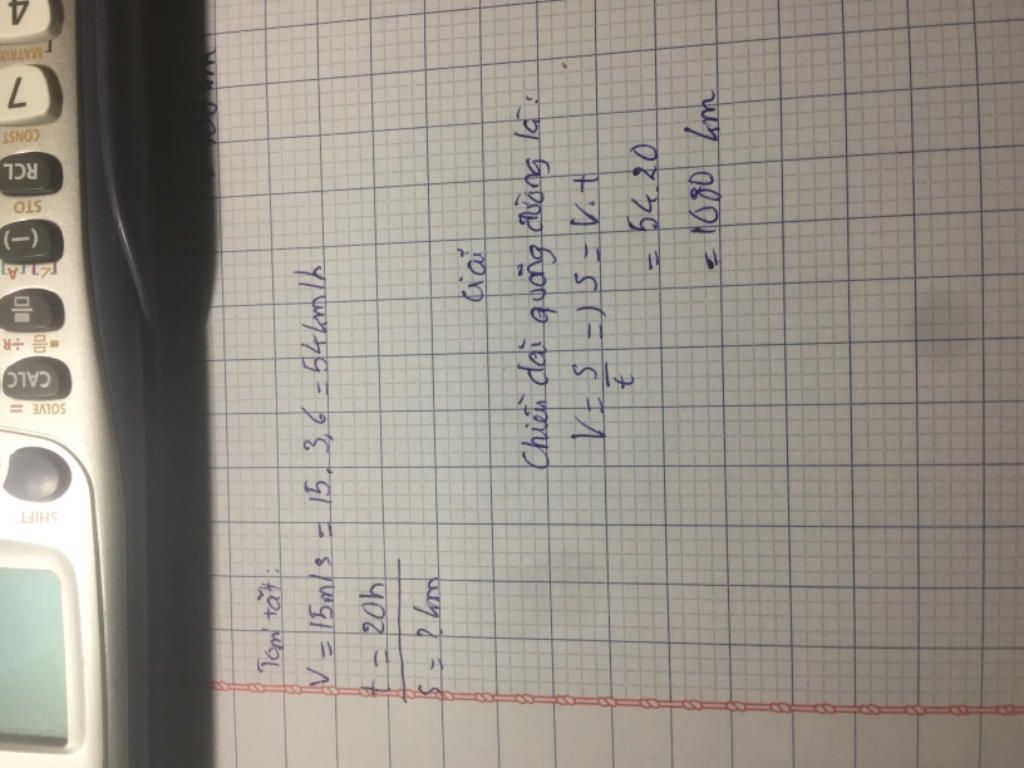 Tóm tắt:
V = 15m/s = 15.3,6 = 54km/h
t = 20h
S = ? km
Giải
Chiều dài quãng đường là:
V = S/t => S = V.t
= 54.20
= 1080 km
4
MATRIX
7
CONST
RCL
STO
(−)
CALC
SOLVE =
SHIFT